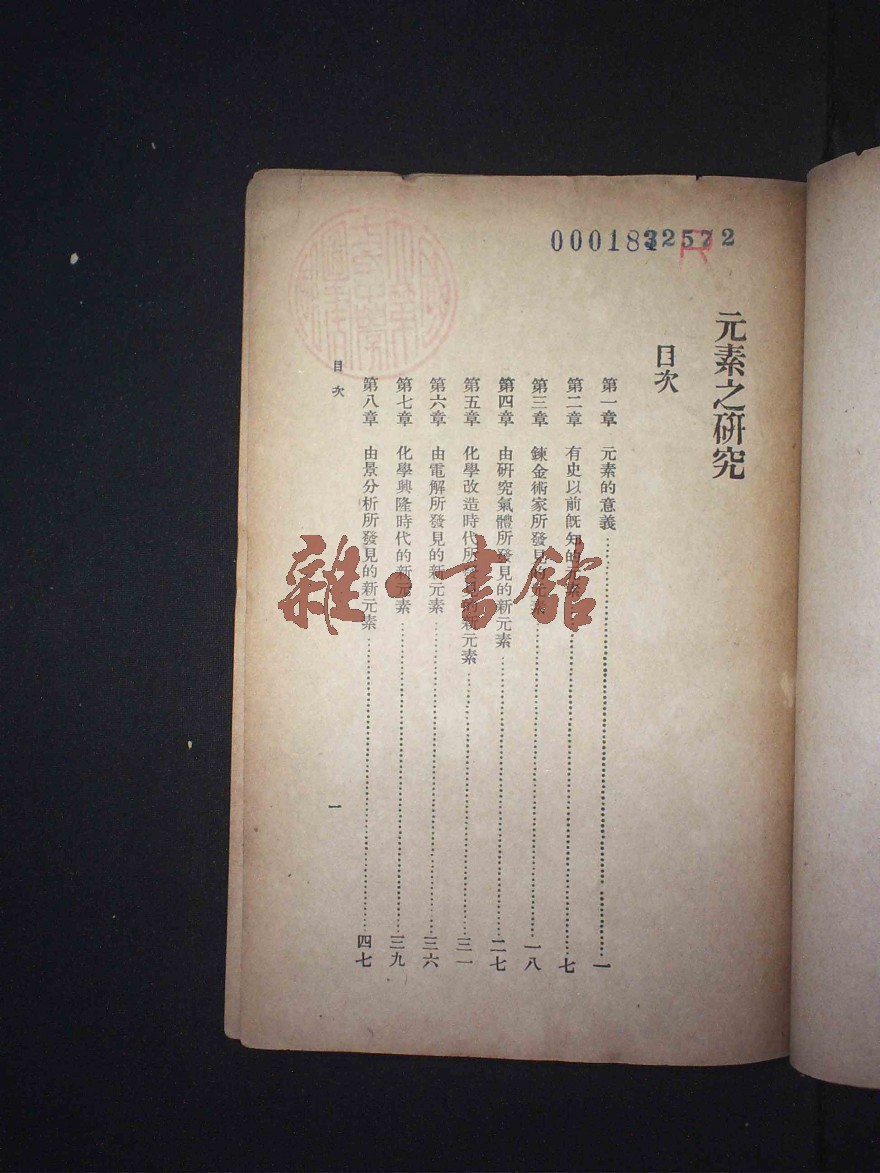 00018432572
R
元素之硏究
目次
第一章　元素的意義……一
第二章　有史以前旣知的元素……七
第三章　鍊金術家所發見的元素……一八
第四章　由硏究氣體所發見的新元素……二七
第五章　化學改造時代所發見的新元素……三一
第六章　由電解所發見的新元素……三六
第七章　化學興隆時代的新元素……三九
第八章　由景分析所發見的新元素……四七
目次
一
雜·書館